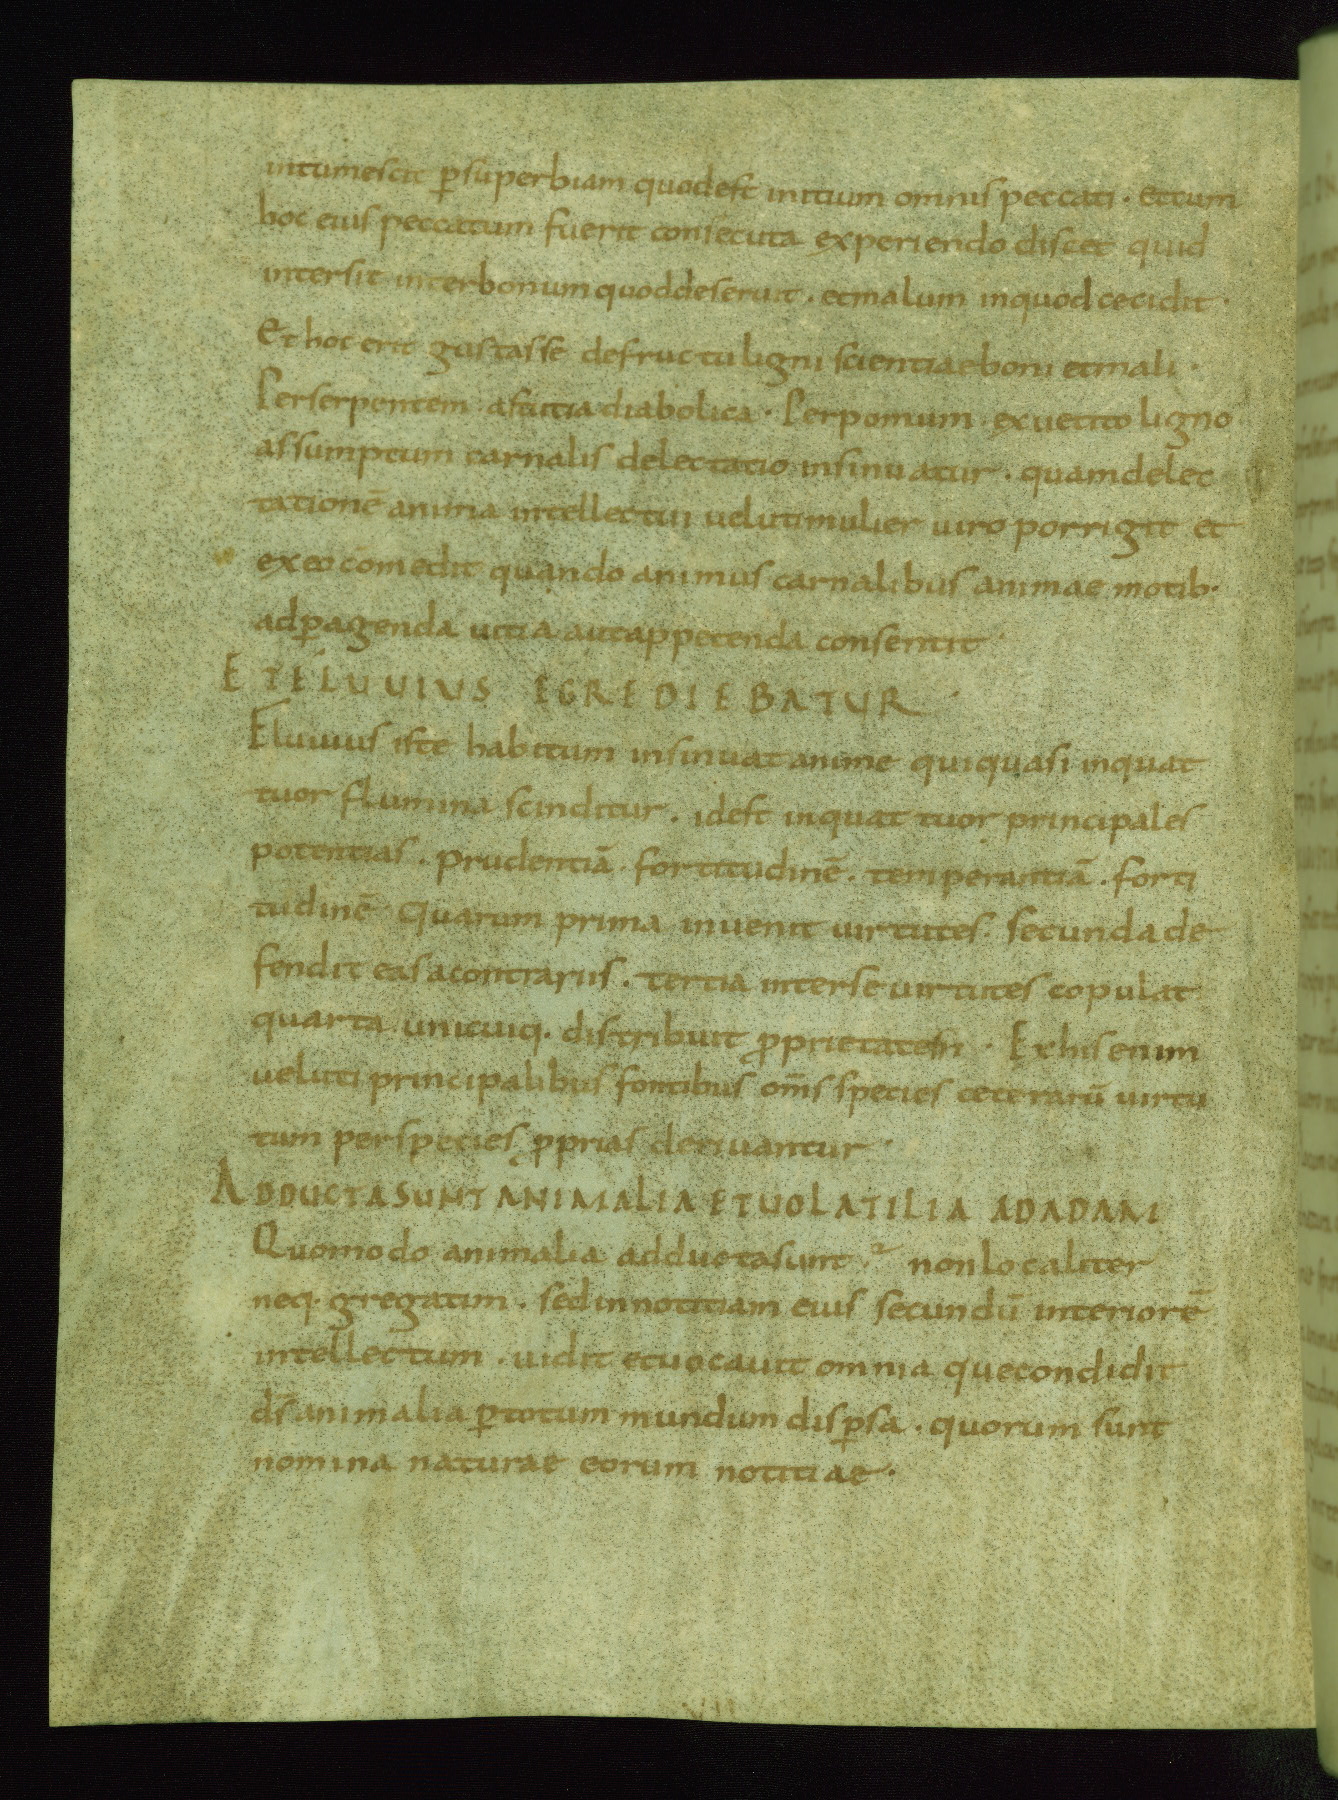 intumescit ꝑsuperbiam quodest initium omnis peccati · ettum
hoc eius peccatum fuerit consecuta experiendo discet quid
intersit interbonum quoddeseruit · etmalum inquod cecidit ·
Et hoc erit gustasse defructu ligni scientiae boni etmali ·
Perserpentem astutia diabolica · Perpomum ex uetito ligno
assumptum carnalis delectatio insinuatur · quamdelec
tationē anima intellectui uelutimulier uiro porrigit et
exeo comedit quando animus carnalibus animae motib·
adꝑagenda uitia autappetenda consentit ·
ET FLUUIUS EGREDIEBATUR ·
Fluuius iste habitum insinuat anime quiquasi inquat
tuor flumina scinditur · idest inquattuor principales
potentias · prudentiā · fortitudinē · temperantiā · forti
tudinē Quarum prima inuenit uirtutes · secunda de
fendit eas acontrariis · tertia interse uirtutes copulat
quarta unicuiq· distribuit ꝓprietatem · Exhis enim
ueluti principalibus fontibus om̄s species ceterarū uirtu
tum perspecies ꝓprias deriuantur ·
ADDUCTASUNT ANIMALIA ETUOLATILIA ADADAM
Quomodo animalia adductasunt ? non localiter
neq· gregatim · sedinnotitiam eius secundū interiorē
intellectum · uidit etuocauit omnia quecondidit
d̄s animalia ꝑtotum mundum disꝑsa · quorum sunt
nomina naturae eorum notitiae ·
VII